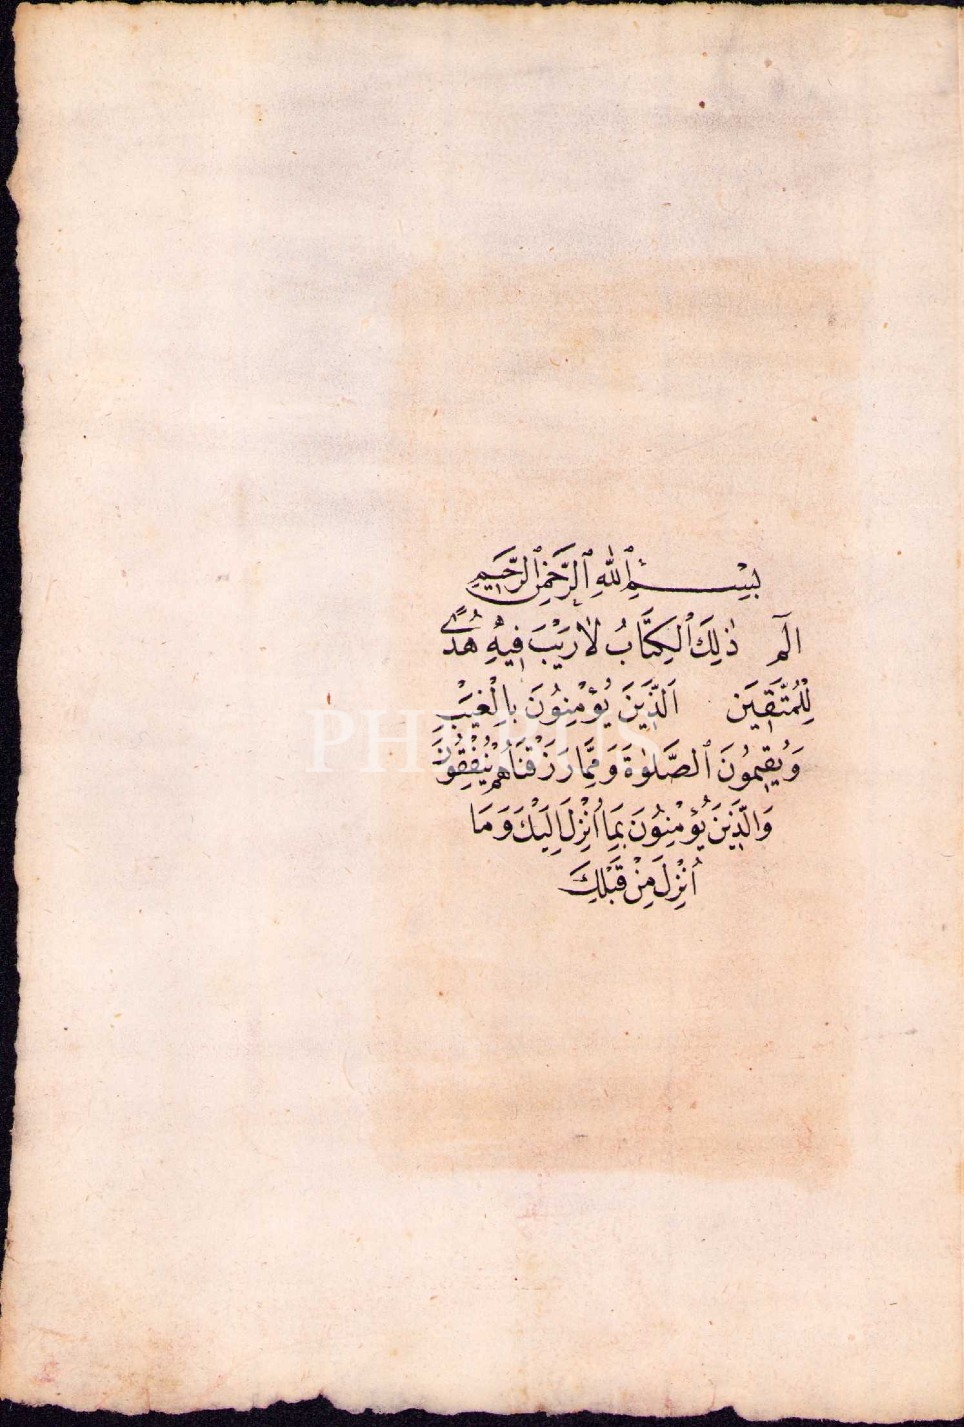 بِسْمِ ٱللّٰهِ ٱلرَّحْمٰنِ ٱلرَّحِيمِ
الٓمٓ ذٰلِكَ ٱلْكِتَابُ لَا رَيْبَ فِيهِ هُدًى
لِلْمُتَّقِينَ اَلَّذِينَ يُؤْمِنُونَ بِالْغَيْبِ
وَيُقِيمُونَ ٱلصَّلٰوةَ وَمِمَّا رَزَقْنَاهُمْ يُنْفِقُونَ
وَالَّذِينَ يُؤْمِنُونَ بِمَا اُنْزِلَ اِلَيْكَ وَمَا
اُنْزِلَ مِنْ قَبْلِكَ
PHEBUS